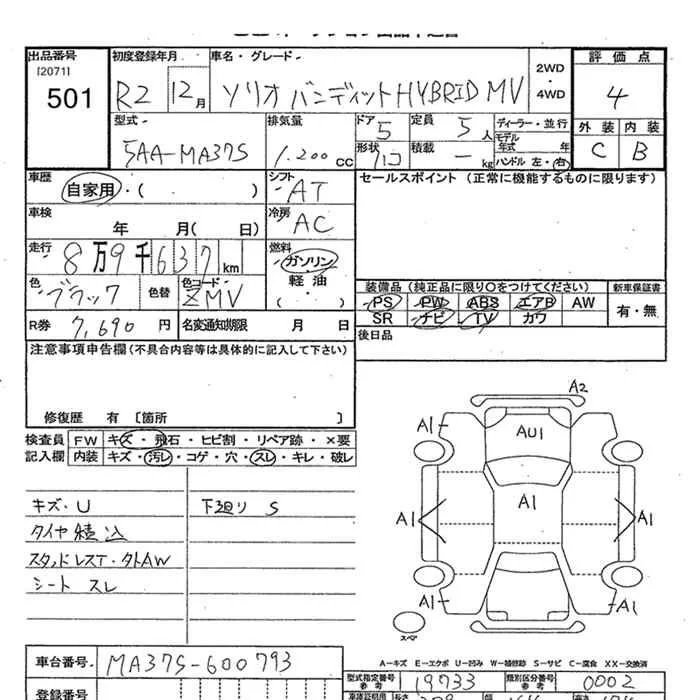 出品番号 初度登録年月 車名・グレード
[2071] 501 R2 12月 ソリオ バンディット HYBRID MV 2WD ・ 4WD
評価点 4
型式 5AA-MA37S 排気量 1.200 CC ドア 5 定員 5人 ディーラー・並行
形状 積載 ー kg モデル年式 年 ハンドル 左・右
外装 内装
C B
車歴 自家用・( ) シフト AT セールスポイント (正常に機能するものに限ります)
車検 年 月( 日) 冷房 AC
走行 8万9千637km 燃料 ガソリン・軽油・( )
色 ブラック 色替 色コード ZMV
装備品 (純正品に限り○をつけてください) 新車保証書
PS PW ABS エアB AW 有・無
SR ナビ TV カワ
R券 7,690円 名変通知期限 月 日 後日品
注意事項申告欄(不具合内容等は具体的に記入して下さい)
修復歴 有 〔箇所 〕
検査員 FW キズ・飛石・ヒビ割・リペア跡・×要
記入欄 内装 キズ・汚レ・コゲ・穴・スレ・キレ・破レ
キズ・U 下廻り S
タイヤ積込
スタッドレスT・タトAW
シート スレ
A2
A1 AU1
A1 A1 A1
A1 A1
スペア
A-キズ E-エクボ U-凹み W-補修跡 S-サビ C-腐食 XX-交換済
車台番号 MA37S-600793
型式指定番号 参考 19733 類別区分番号 参考 0002
登録番号